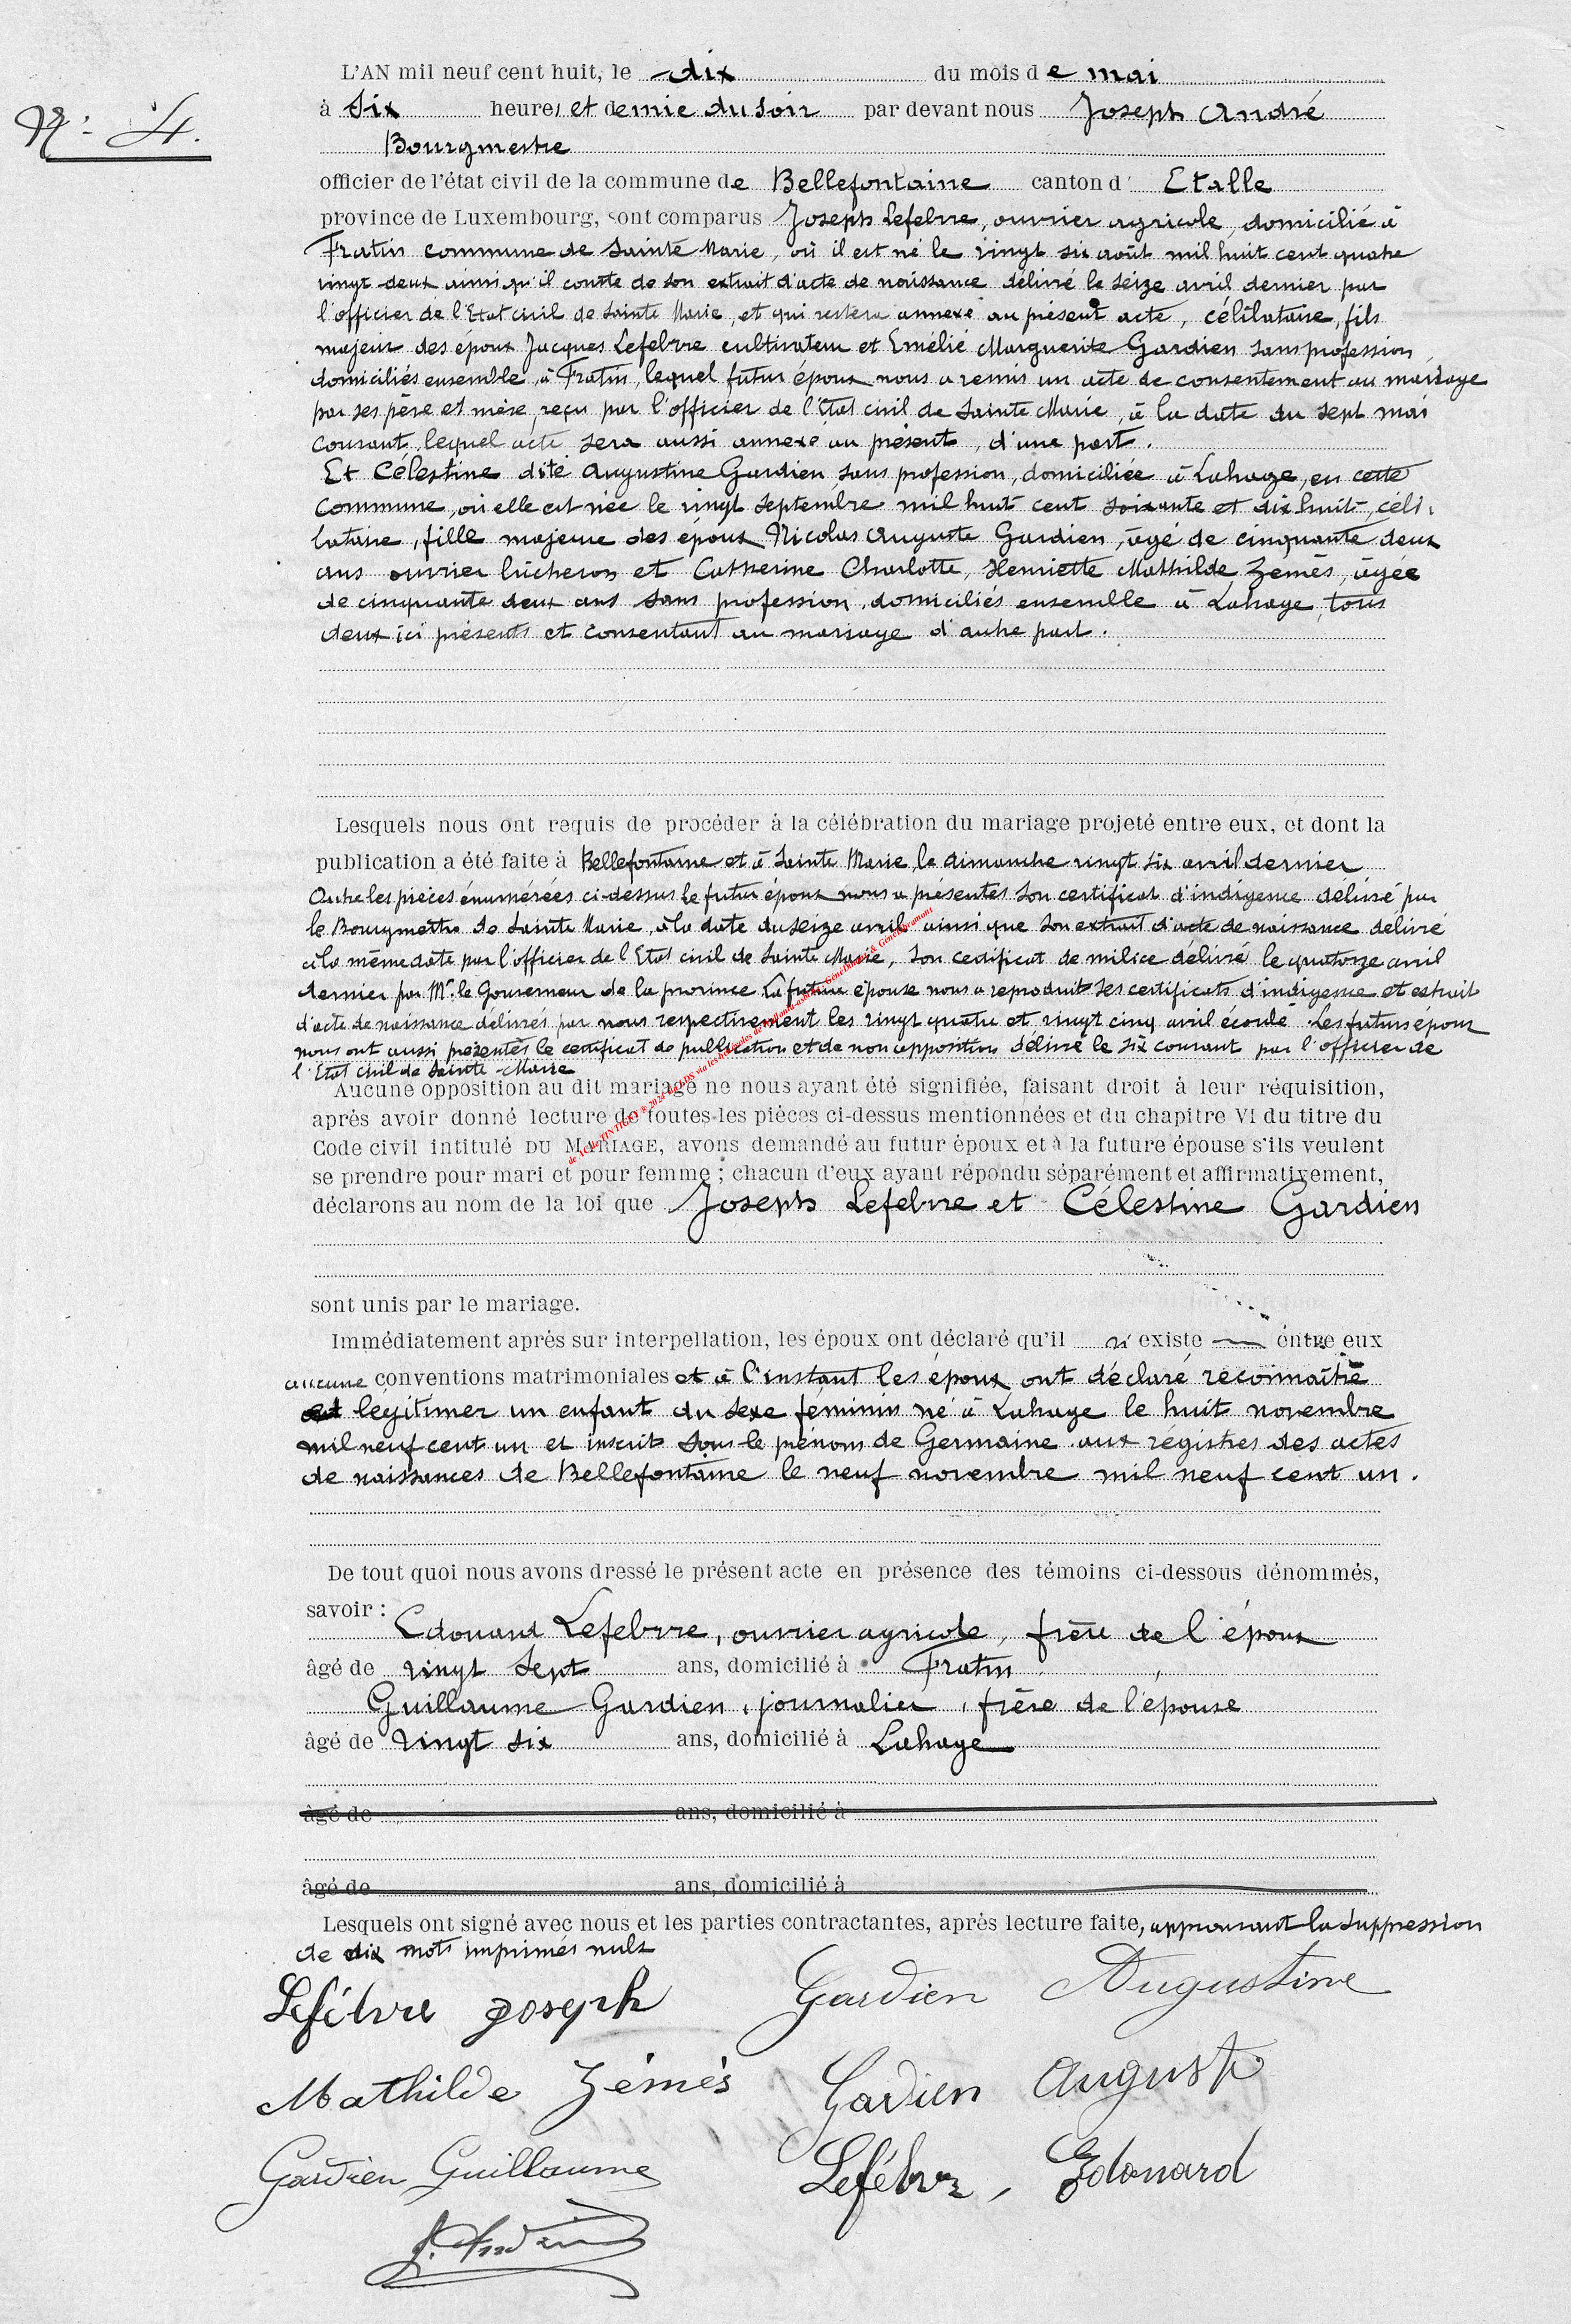 L'AN mil neuf cent huit, le dix du mois de mai
N° 4.
à six heures et demie du soir par devant nous Joseph André
Bourgmestre
officier de l'état civil de la commune de Bellefontaine canton d' Etalle
province de Luxembourg, sont comparus Joseph Lefebvre, ouvrier agricole, domicilié à
Fratin commune de Sainte Marie, où il est né le vingt six août mil huit cent quatre
vingt deux ainsi qu'il conste de son extrait d'acte de naissance délivré le seize avril dernier par
l'officier de l'Etat civil de Sainte Marie, et qui restera annexé au présent acte, célibataire, fils
majeur des époux Jacques Lefebvre cultivateur et Emélie Marguerite Gardien sans profession,
domiciliés ensemble à Fratin, lequel futur époux nous a remis un acte de consentement au mariage
par ses père et mère, reçu par l'officier de l'Etat civil de Sainte Marie, à la date du sept mai
courant, lequel acte sera aussi annexé au présent, d'une part.
Et Célestine dite Augustine Gardien, sans profession, domiciliée à Lahage, en cette
commune, où elle est née le vingt septembre mil huit cent soixante et dix huit, céli-
bataire, fille majeure des époux Nicolas Auguste Gardien, âgé de cinquante deux
ans ouvrier bûcheron et Catherine Charlotte, Henriette Mathilde Zemès, âgée
de cinquante deux ans sans profession, domiciliés ensemble à Lahage, tous
deux ici présents et consentant au mariage d'autre part.
Lesquels nous ont requis de procéder à la célébration du mariage projeté entre eux, et dont la
publication a été faite à Bellefontaine et à Sainte Marie, le dimanche vingt six avril dernier
Outre les pièces énumérées ci-dessus le futur époux nous a présentés son certificat d'indigence délivré par
le Bourgmestre de Sainte Marie, à la date du seize avril ainsi que son extrait d'acte de naissance délivré
à la même date par l'officier de l'Etat civil de Sainte Marie, son certificat de milice délivré le quatorze avril
dernier par Mr. le Gouverneur de la province La future épouse nous a reproduit ses certificats d'indigence et extrait
d'acte de naissance délivrés par nous respectivement les vingt quatre et vingt cinq avril écoulé. Les futurs époux
nous ont aussi présentés le certificat de publication et de non opposition délivré le six courant par l'officier de
l'Etat civil de Sainte-Marie
Aucune opposition au dit mariage ne nous ayant été signifiée, faisant droit à leur réquisition,
après avoir donné lecture de toutes les pièces ci-dessus mentionnées et du chapitre VI du titre du
Code civil intitulé DU MARIAGE, avons demandé au futur époux et à la future épouse s'ils veulent
se prendre pour mari et pour femme ; chacun d'eux ayant répondu séparément et affirmativement,
déclarons au nom de la loi que Joseph Lefebvre et Célestine Gardien
sont unis par le mariage.
Immédiatement après sur interpellation, les époux ont déclaré qu'il n'existe entre eux
aucune conventions matrimoniales et à l'instant les époux ont déclaré reconnaître
et légitimer un enfant du sexe féminin né à Lahage le huit novembre
mil neuf cent un et inscrit sous le prénom de Germaine aux registres des actes
de naissances de Bellefontaine le neuf novembre mil neuf cent un.
De tout quoi nous avons dressé le présent acte en présence des témoins ci-dessous dénommés,
savoir :
Edouard Lefebvre, ouvrier agricole, frère de l'époux
âgé de vingt sept ans, domicilié à Fratin
Guillaume Gardien, journalier, frère de l'épouse
âgé de vingt six ans, domicilié à Lahage
âgé de ans, domicilié à
âgé de ans, domicilié à
Lesquels ont signé avec nous et les parties contractantes, après lecture faite, approuvant la suppression
de dix mots imprimés nuls
Lefébvre Joseph Gardien Augustine
Mathilde Zémès Gardien Auguste
Gardien Guillaume Lefébvre, Edouard
J. André